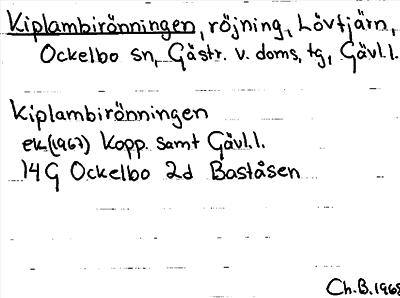 Kiplambirönningen, röjning, Lövtjärn,
Ockelbo sn, Gästr. v. doms, tg, Gävl.l.
Kiplambirönningen
ek.(1967) Kopp. samt Gävl.l.
14G Ockelbo 2d Baståsen
Ch.B.1968